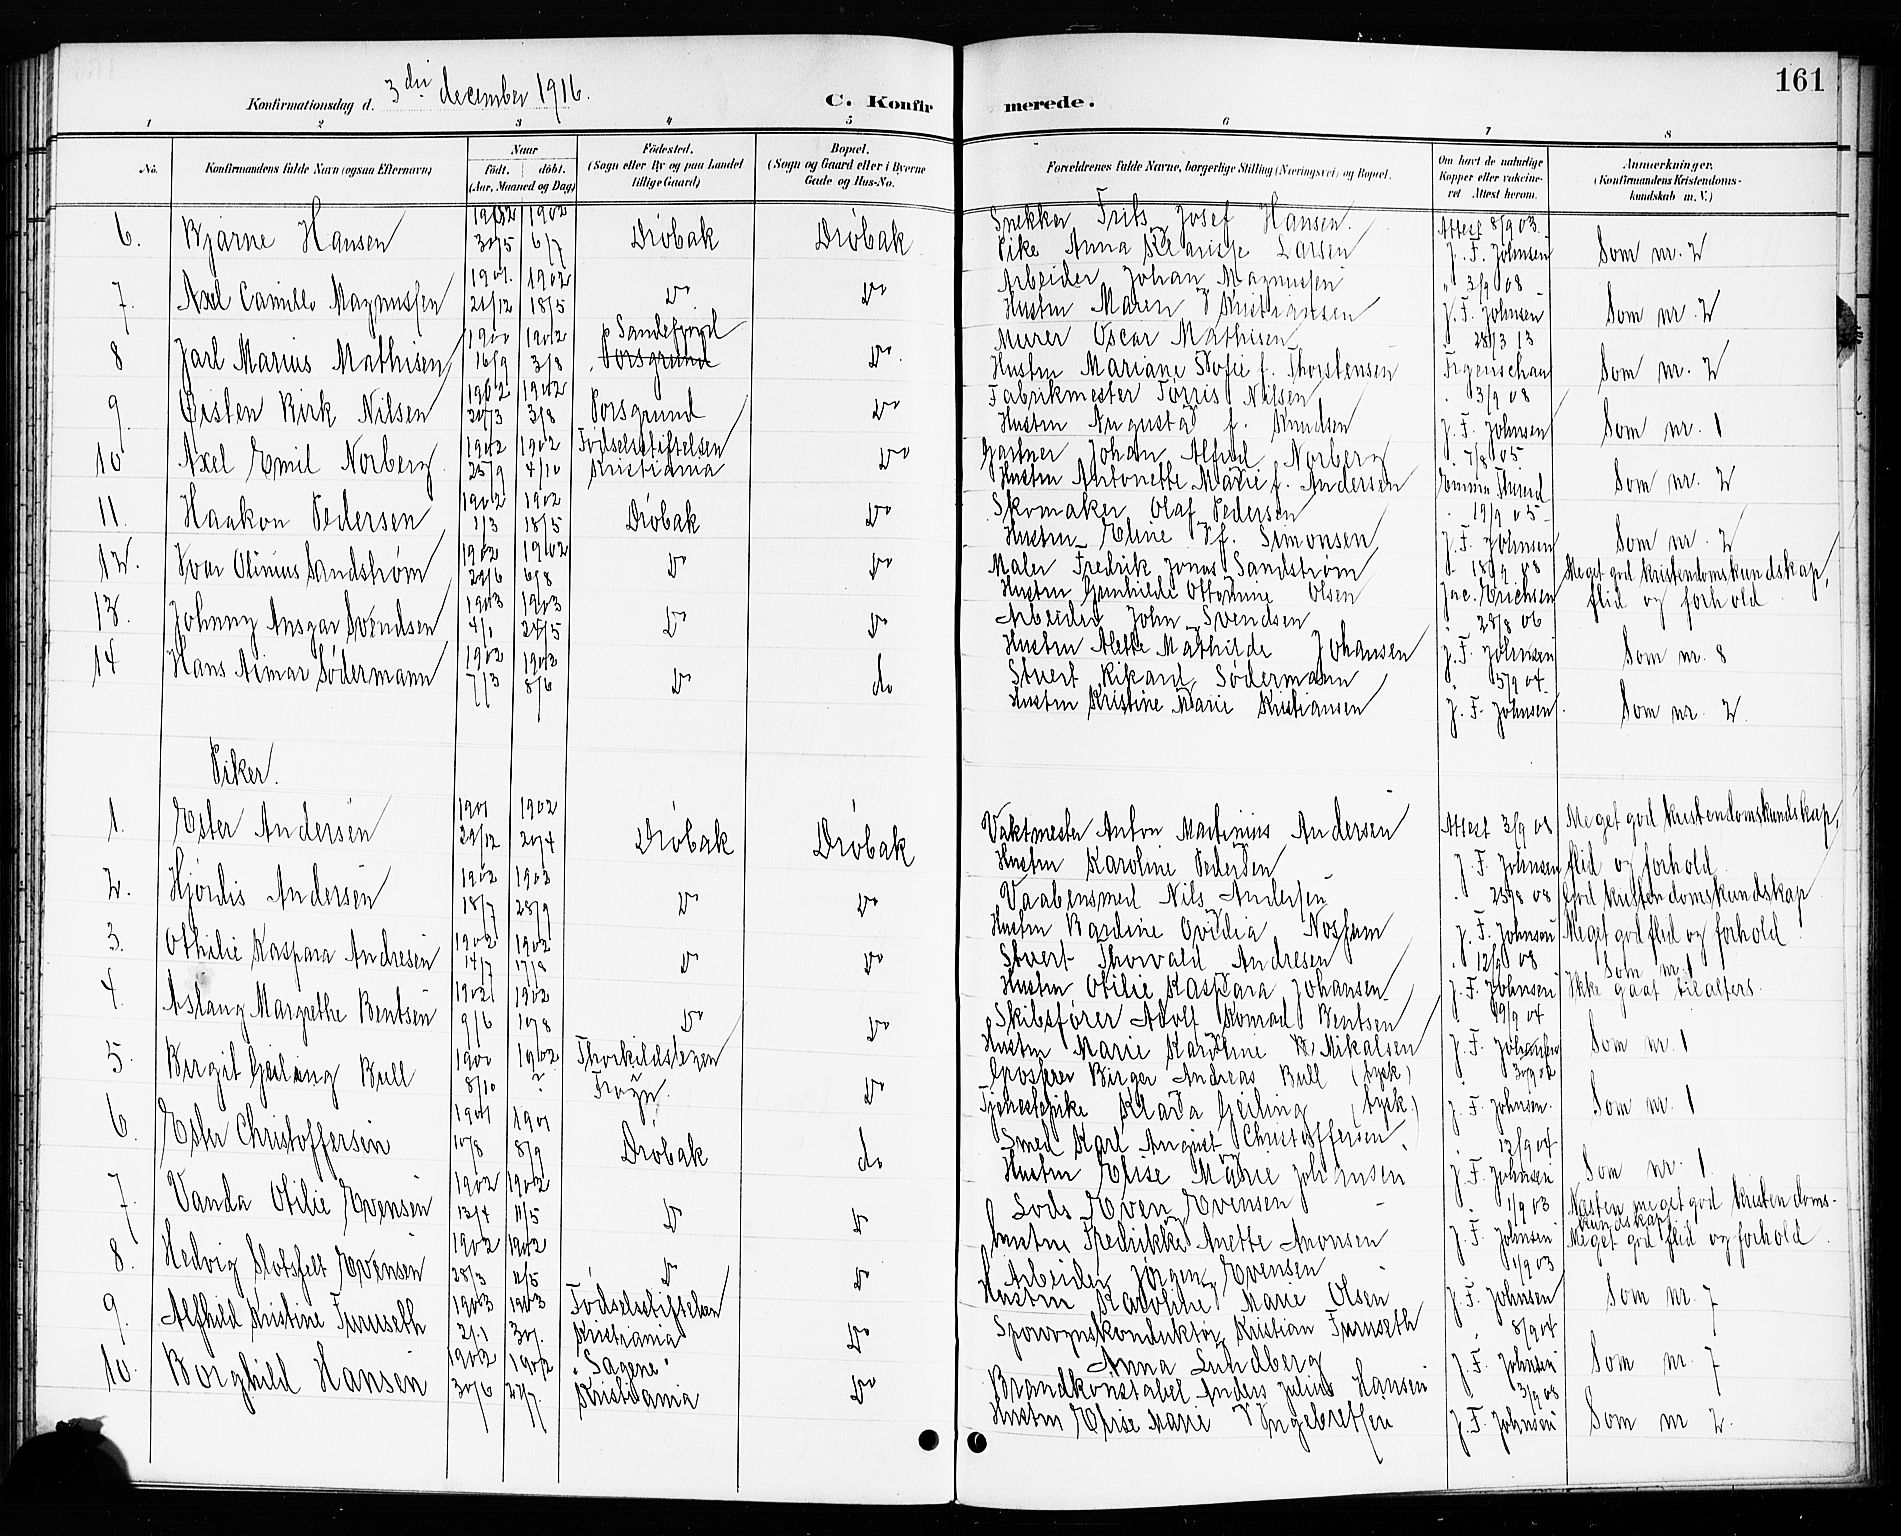 161
Konfirmationsdag d. 3die december 1916.
C. Konfirmerede.
1 2 3 4 5 6 7 8
No. Konfirmandens fulde Navn (ogsaa Efternavn) Naar Født. døbt. (Aar, Maaned og Dag) Fødested. (Sogn eller By og paa Landet tillige Gaard) Bopæl. (Sogn og Gaard eller i Byerne Gade og Hus-No. Forældrenes fulde Navne, borgerlige Stilling (Næringsvei) og Bopæl. Om havt de naturlige Kopper eller vaccineret Attest herom. Anmærkninger. (Konfirmandens Kristendomskundskab m. V.)
6. Bjarne Hansen 1902 30/5 1902 6/7 Drøbak Drøbak Snekker Frits Josef Hansen. Attest 8/9 03.
Pike Anna Larsen J. F. Johnsen Som nr. 2
7. Axel Camillo Magnussen 1901. 21/12 1902 18/5 Do Do Arbeider Johan Magnussen " 3/9 08
Hustru Maren Kristiansen J. F. Johnsen Som nr. 2
8 Jarl Marius Mathisen 1900 16/9 1902 3/8 Sandefjord Porsgrund Do. Murer Oscar Mathisen 28/3 13
Hustru Mariane Sofie f. Thorstensen Som nr. 2
9. Øisten Kirk Nilsen 1902 1902 3/8 Porsgrund Do Fabrikmester Tørris Nilsen 3/9 08
Hustru Augusta f. Knudsen J. F. Johnsen Som nr. 1
10 Axel Emil Norberg 1902 25/9 1902 4/10 Fødselsstiftelsen Kristiania Do Gartner Johan Alfred Norberg 7/8 05
Hustru Antonette Marie f. Andersen Som nr. 2
11. Haakon Pedersen 1902 1/3 1902 18/5 Drøbak Do Skomaker Olaf Pedersen 19/9 05
Hustru Eline f. Simonsen J. F. Johnsen Som nr. 2
12. Ivar Olinius Sandstrøm 1902 1902 6/8 Do Do Maler Fredrik Jonas Sandstrøm 18/9 08 Meget god kristendomskundskap,
Hustru Gunhilde Olsen Jac. Erichsen flid og forhold
13. Johnny Ansgar Svendsen 1903 4/1 1903 24/5 Do Do Arbeider John Svendsen 28/8 06
Hustru Alette Mathilde Johansen J. F. Johnsen Som nr. 8
14 Hans Aimar Södermann 1902 7/3 1902 8/6 Do do Stuert Rikard Södermann 5/9 04
Hustru Kristine Marie Kristiansen J. F. Johnsen Som nr. 2.
Piker.
1. Ester Andersen 1901 29/12 1902 20/4 Drøbak Drøbak Vaktmester Anton Martinius Andersen Attest 3/9 08 Meget god kristendomskundskap,
Hustru Karoline Pedersen J. F. Johnsen flid og forhold
2. Hjördis Andersen 1902 18/7 1902 28/9 Do Do Vaabensmed Nils Andersen 25/8 08 God kristendomskundskap
Hustru Bardine Ovidia J. F. Johnsen Meget god flid og forhold
3. Othilie Kaspara Andresen 1902 14/7 1902 17/8 Do Do Stuert Thorvald Andresen 12/9 08 Som nr. 1
Hustru Otilie Kaspara Johansen J. F. Johnsen Ikke gaat til alters.
4. Aslaug Margrethe Bentsen 1902 9/6 1902 10/8 Do Do Skibsfører Adolf Konrad Bentsen 19/9 04
Hustru Marie Karoline Mikalsen J. F. Johnsen Som nr. 1
5. Birgit Geiling Bull 1900 8/10 1902 ? Frogn. Do Grosserer Birger Andreas Bull (tysk) 30/9 02
Tjenestepike Klara Geiling (tysk.) J. F. Johnsen. Som nr. 1
6. Ester Christoffersen 1901 10/8 1901 8/9 Drøbak do Smed Karl August Christoffersen. 12/9 04
Hustru Elise Marie Johansen J. F. Johnsen Som nr. 1
7. Vanda Otilie Evensen 1902 13/4 1902 11/5 Do Do Lods Even Evensen 1/9 03 Næsten meget god kristendomskundskap
Hustru Fredrikke Anette Aronsen J. F. Johnsen Meget god flid og forhold.
8. Hedvig Slotsfelt Evensen 1902 28/3 1902 11/5 Do Do Arbeider Jørgen Evensen 1/9 03
Hustru Karoline Marie Olsen J. F. Johnsen Som nr. 7
9. Alfhild Kristine Furuseth 1903 1903 Fødselsstiftelsen Kristiania Do Sporvognskonduktør Kristian Furuseth 8/9 04
Anna Lundberg J. F. Johnsen Som nr. 7
10. Borghild Hansen 1902 30/6 1902 27/7. "Sagene" Kristiania Do Brandkonstabel Anders Julius Hansen 3/9 08
Hustru Elise Marie Ingebretsen J. F. Johnsen Som nr 2.